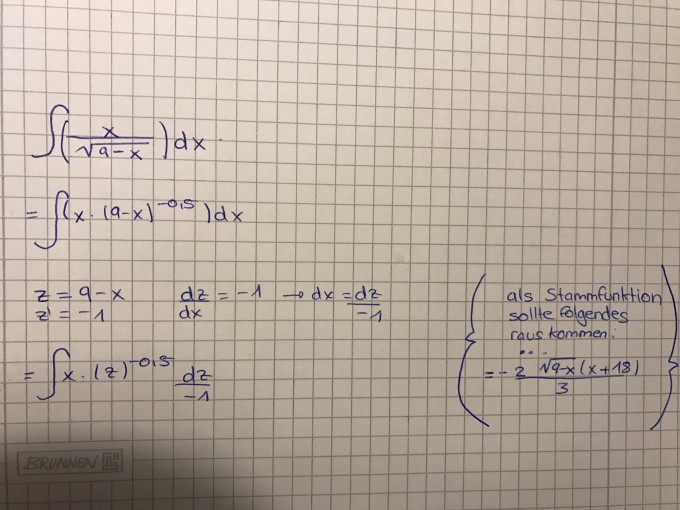 ∫(x/√(9-x)) dx
= ∫(x · (9-x)^-0,5) dx
z = 9-x   dz/dx = -1 → dx = dz/-1
z' = -1
= ∫x · (z)^-0,5 dz/-1
als Stammfunktion
sollte folgendes
raus kommen:
...
= - 2 √(9-x) (x+18) / 3
BRUNNEN